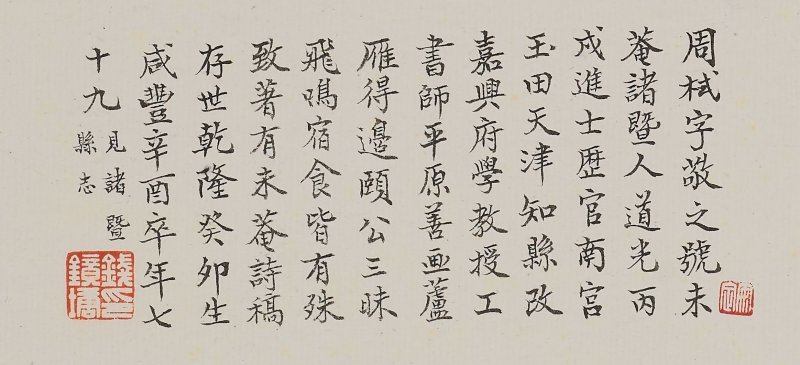 周栻字敬之號未
菴諸暨人道光丙
戍進士歷官南宫
玉田天津知縣改
嘉興府學教授工
書師平原善画蘆
雁得邊頤公三昧
飛鳴宿食皆有殊
致著有未菴詩稿
存世乾隆癸卯生
咸豐辛酉卒年七
十九
見諸暨
縣志
錢鏡塘